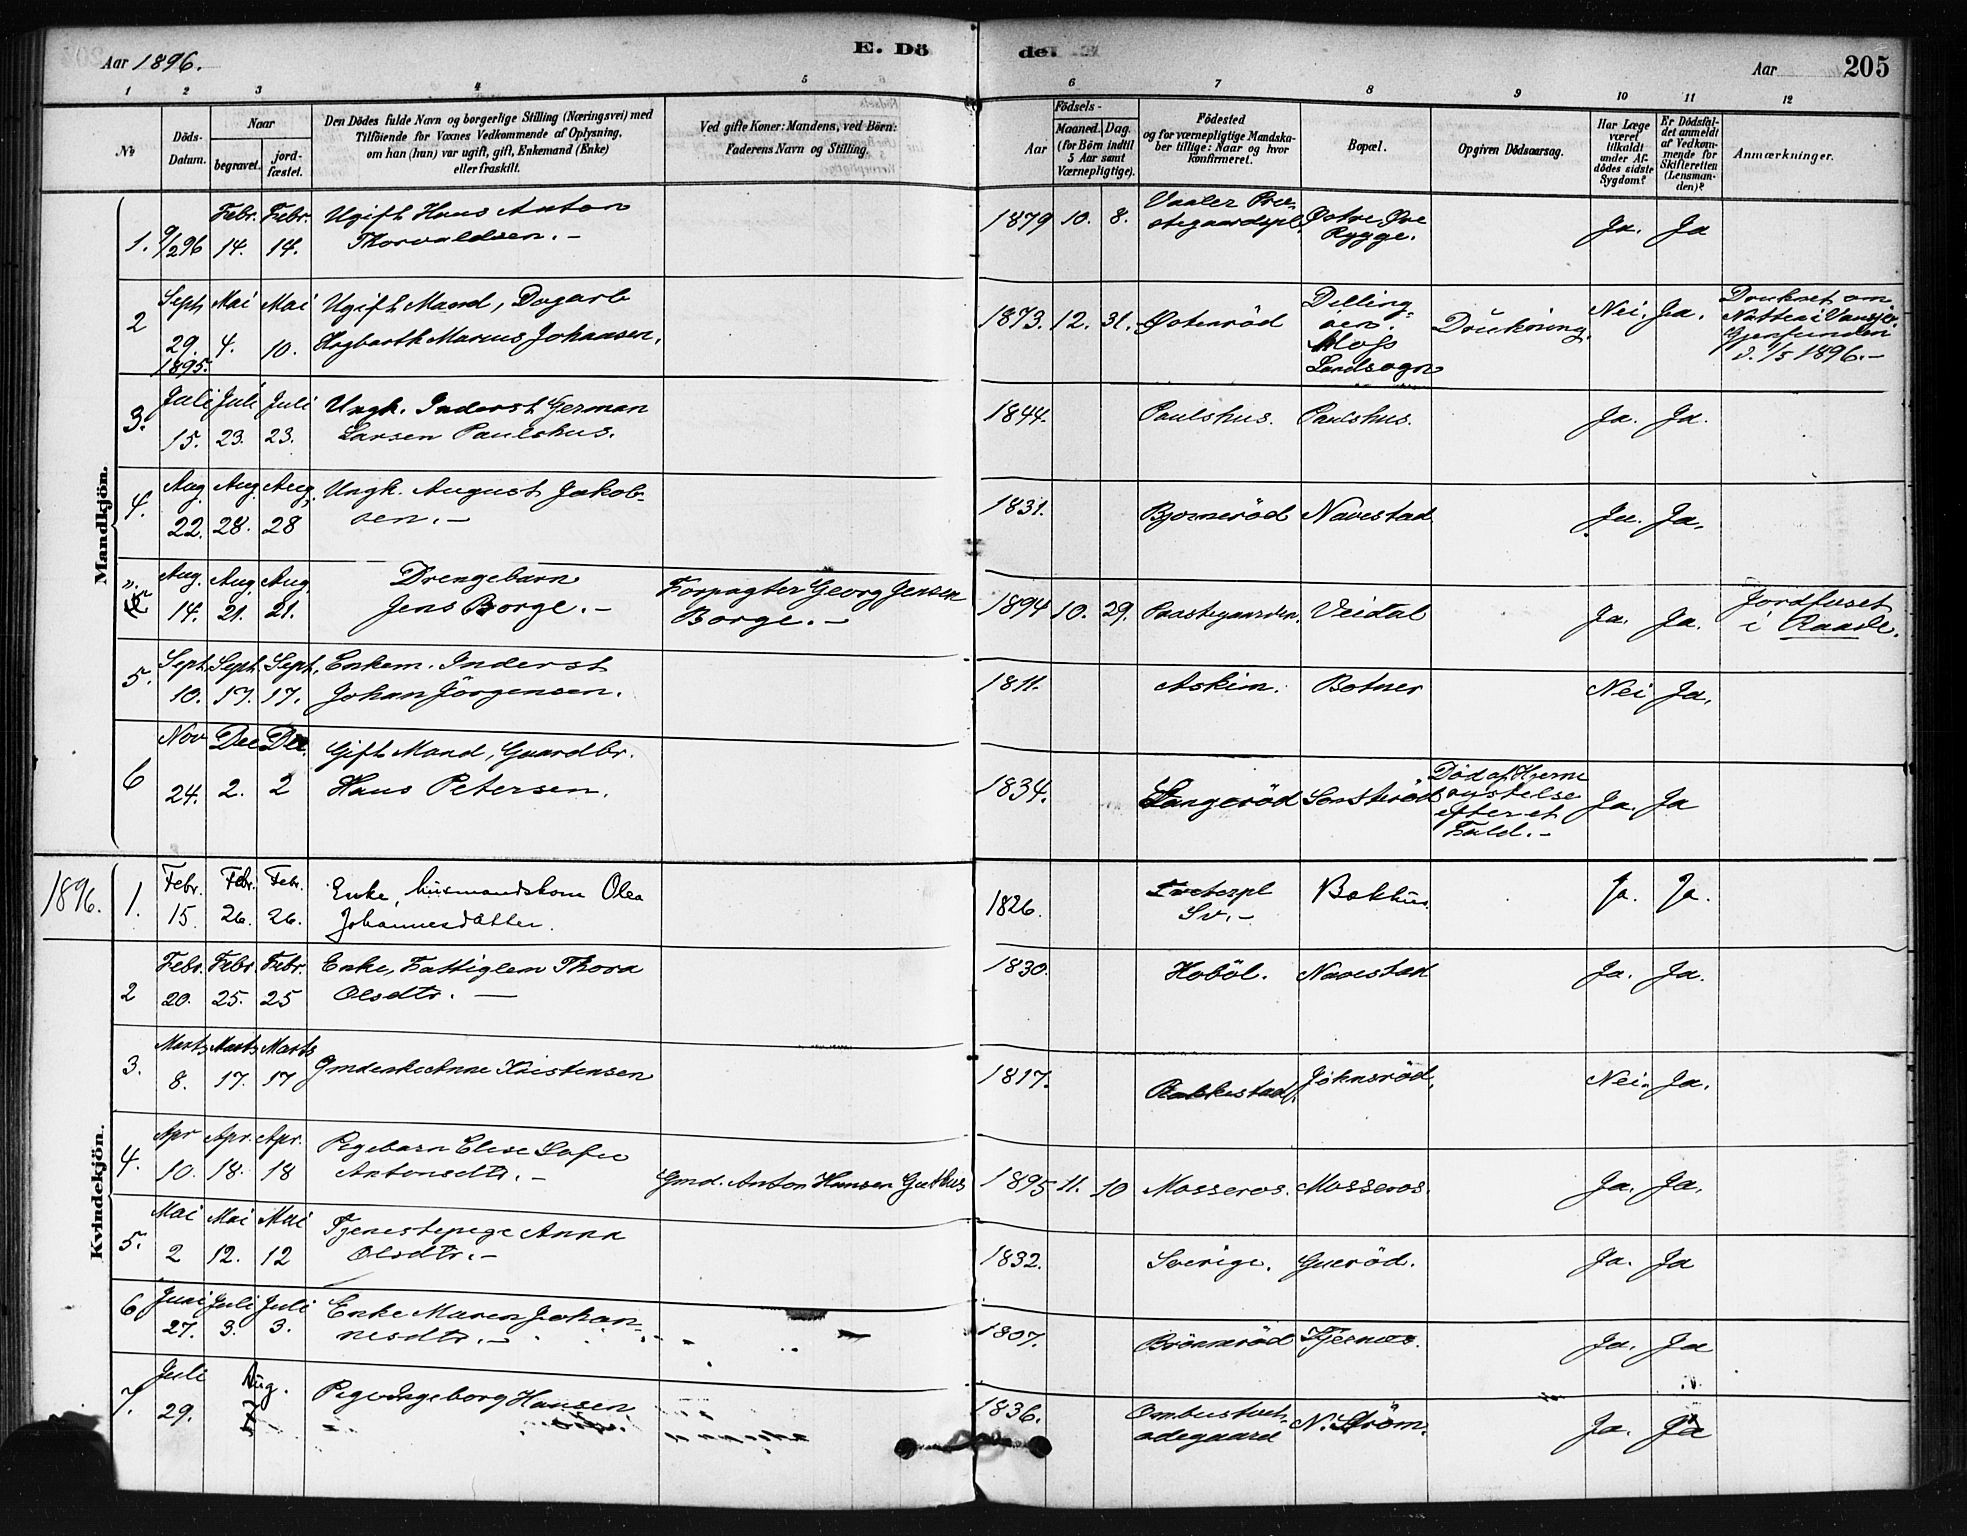 Aar 1896.
E. Dö
de.
Aar
205
1 2 3 4 5 6 7 8 9 10 11 12
No
Döds-
Datum.
Naar
begravet.
jord-
fæstet.
Den Dödes fulde Navn og borgerlige Stilling (Næringsvei) med
Tilföiende for Voxnes Vedkommende af Oplysning,
om han (hun) var ugift, gift, Enkemand (Enke)
eller fraskilt.
Ved gifte Koner: Mandens, ved Börn:
Faderens Navn og Stilling.
Födsels-
Aar
Maaned.
Dag.
(for Börn indtil
5 Aar samt
Værnepligtige).
Födested
og for værnepligtige Mandska-
ber tillige: Naar og hvor
konfirmeret.
Bopæl.
Opgiven Dödsaarsag.
Har Læge
været
tilkaldt
under Af-
dödes sidste
Sygdom?
Er Dödsfal-
det anmeldt
af Vedkom-
mende for
Skifteretten
(Lensman-
den)?
Anmærkninger.
Mandkjön.
1. 9/2 96 Febr. 14. Febr. 14. Ugift Hans Anton
Thorvaldsen. -
1879 10. 8. Vaaler Præ-
stegaardspl. Østre Øre
Rygge. Ja. Ja
2 Sept. 29. 1895. Mai 4. Mai 10. Ugift Mand, Dagarb
Hagbarth Marius Johansen.
1873. 12. 31. Østenröd Dilling-
öen.
Moss
Landsogn Drukning Nei. Ja. Druknet om
Natten i Vansjö.
Gjenfunden
d. 1/5 1896. -
3. Juli 15. Juli 23. Juli 23. Ungk. Inderst German
Larsen Paulshus.
1844. Paulshus. Paulshus. Ja. Ja.
4. Aug. 22. Aug. 28. Aug. 28 Ungk. August Jakob-
sen. -
1831. Bjornerød Navestad Ja. Ja.
Aug. 14. Aug. 21. Aug. 21. Drengebarn
Jens Borge. -
Forpagter Georg Jensen
Borge. -
1894 10. 29. Veidal Ja. Ja. Jordfæstet
i Raade.
5. Sept. 10. Sept. 17. Sept. 17. Enkem. Inderst
Johan Jörgensen.
1811. Askim. Botner Nei Ja.
6 Nov 24. Dec 2. Dec. 2 Gift Mand, Gaardbr.
Hans Petersen.
1834. Langeröd Død af Hjerne
rystelse
efter et
Fald. - Ja. Ja
Kvindekjön.
1896. 1. Febr. 15. Febr. 26. Febr. 26. Enke, husmandskone Olea
Johannesdatter.
1826. Sv. - Bakhus. Ja. Ja.
2 Febr. 20. Febr. 25. Febr. 25 Enke, Fattiglem Thora
Olsdtr. -
1830. Hoböl. Navestad Ja. Ja.
3. Marts 8. Marts 17. Marts 17 Gmdenke Anne Kristensen
1817. Rakkestad. Johnsröd. Nei. Ja.
4. Apr 10. Apr. 18. Apr. 18 Pigebarn Elise Sofie
Antonsdtr. -
Gmd. Anton Hansen Guthus
1895 11. 10 Mosseros. Mosseros. Ja. Ja.
5. Mai 2 Mai 12. Mai 12 Tjenestepige Anna
Olsdtr. -
1832. Sverige. Ja. Ja
6 Juni 27. Juli 3. Juli 3. Enke Maren Johan-
nesdtr. -
1807. Brönneröd Tjernæs. Ja. Ja
7. Juli 29. Aug. Pige Ingeborg Hansen
1836. Ombustvet-
ödegaard N. Ström. Ja. Ja